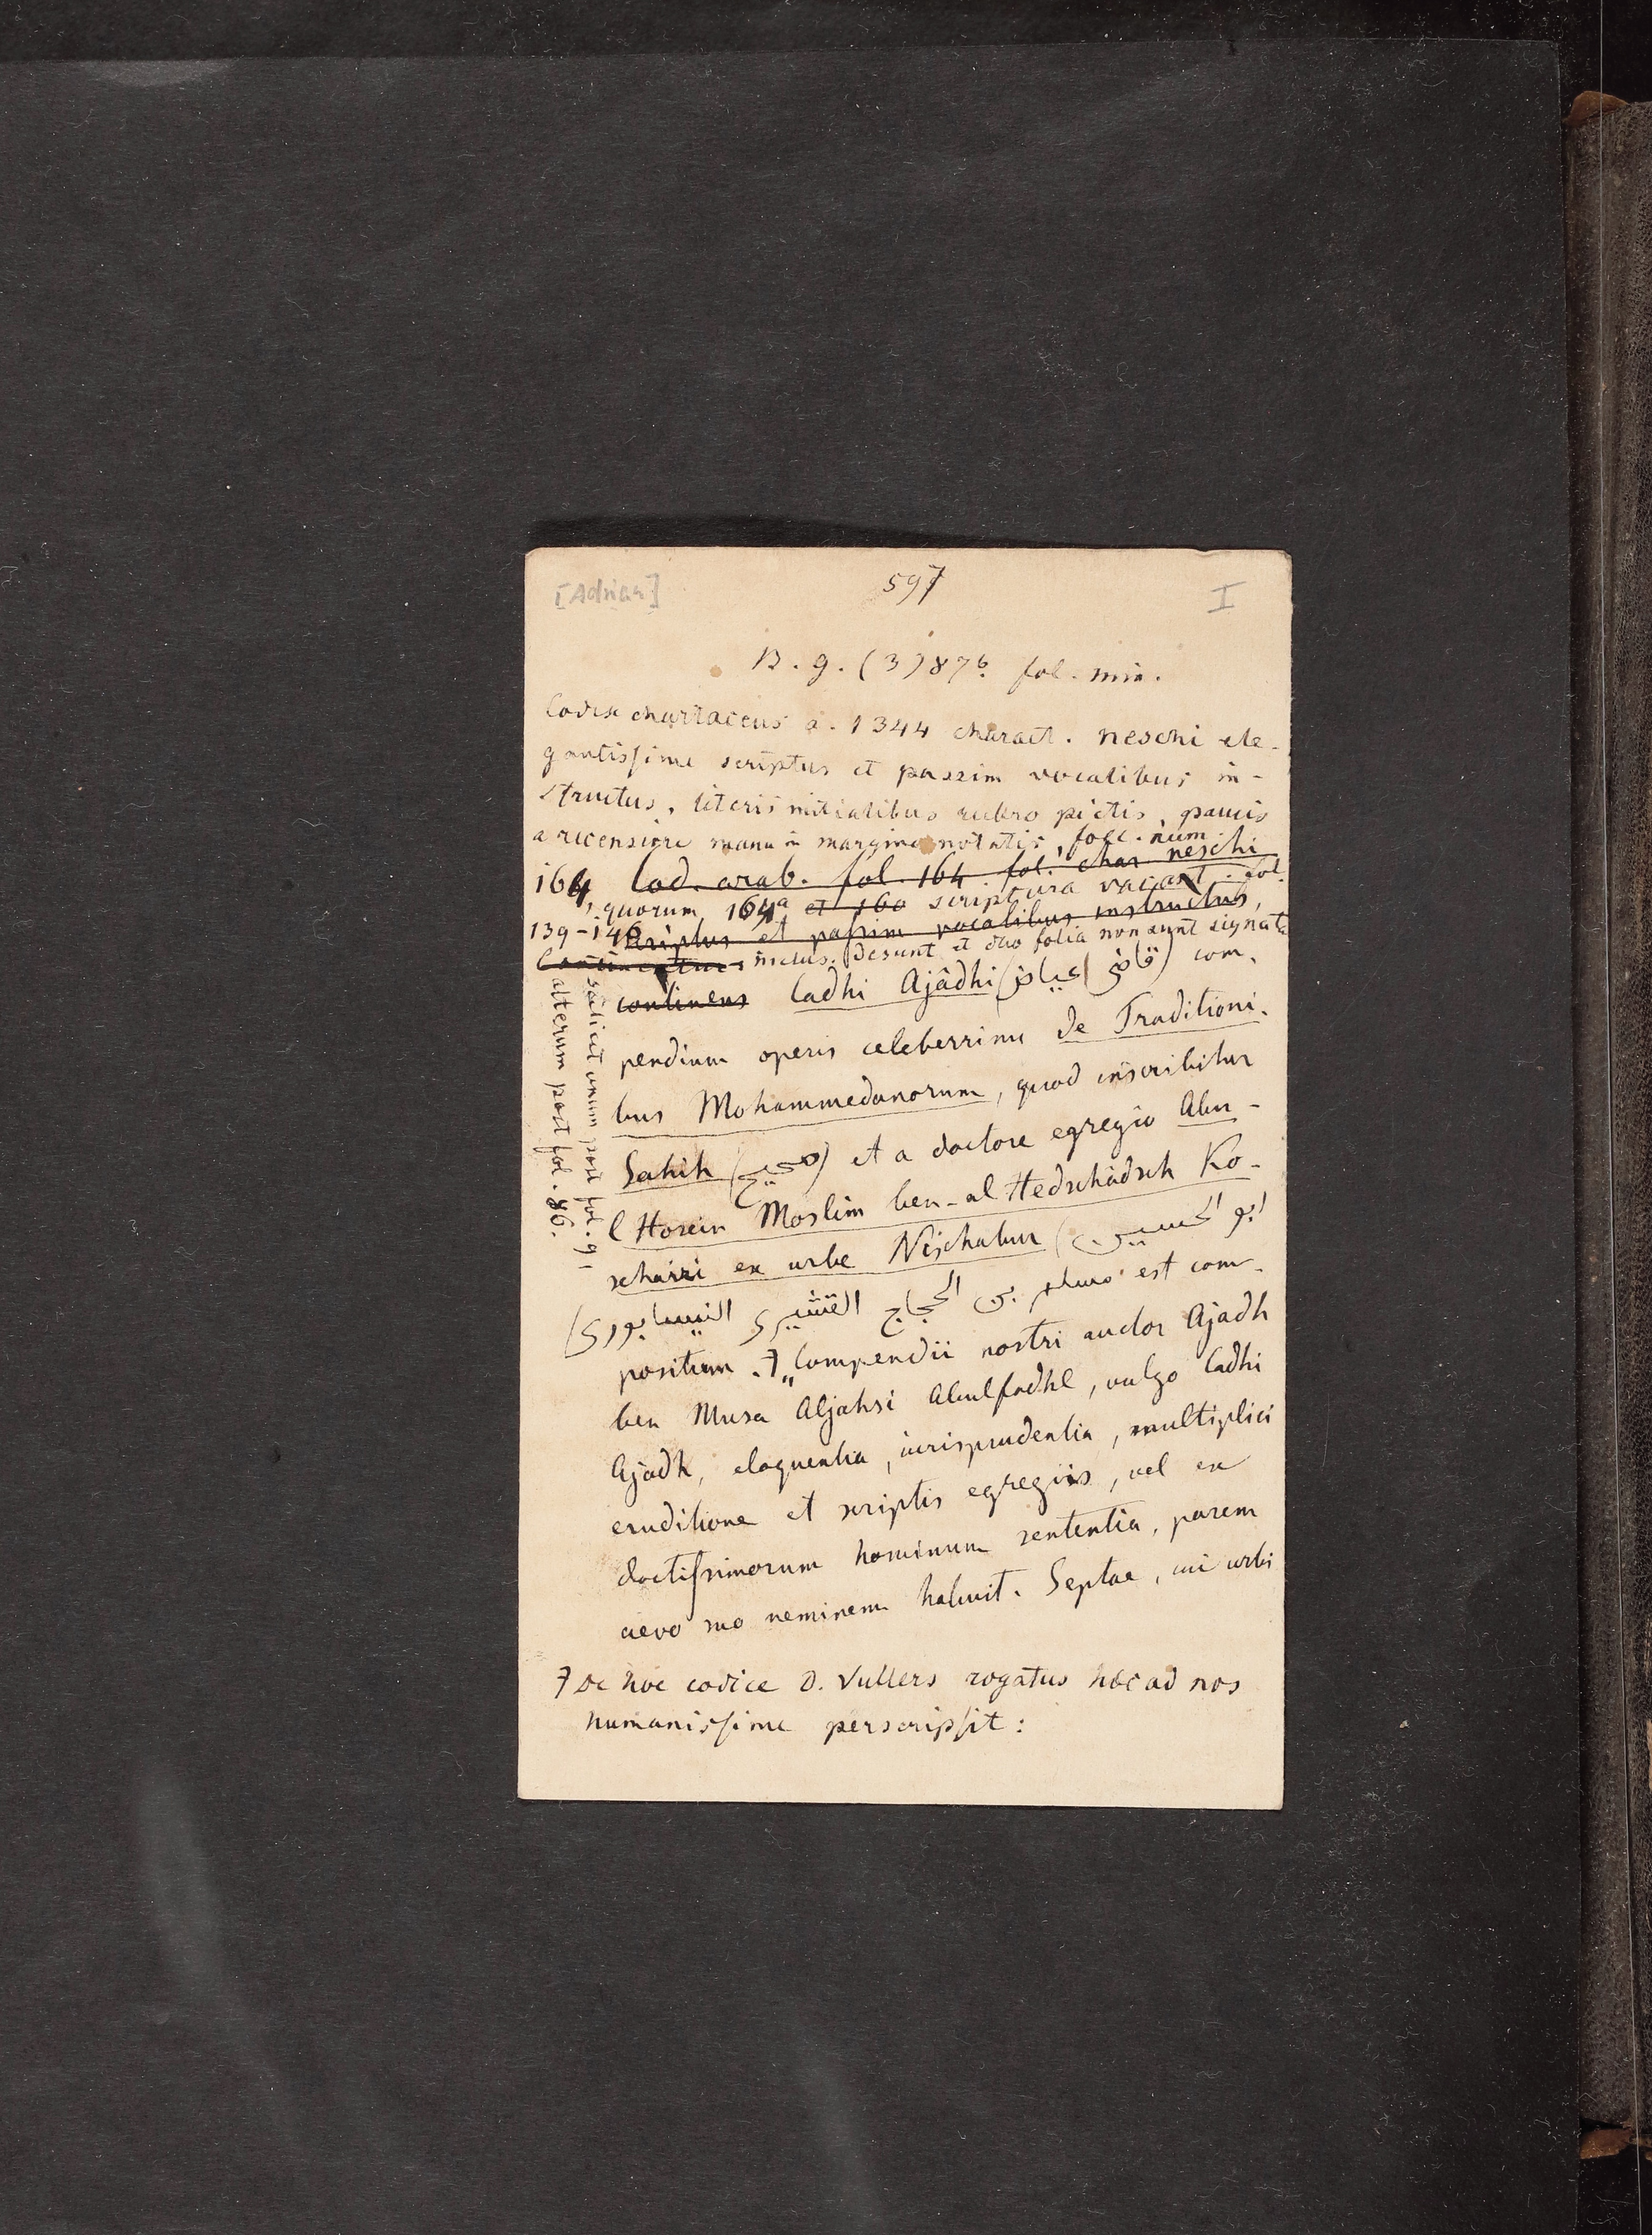 [Adrian]
597
I
B. g. (3) 87b. fol. min.
Codex chartaceus a. 1344 charact. neschi ele-
gantissime scriptus et passim vocalibus in-
structus, literis initialibus rubro pictis, paucis
a recensiore manu in margine notatis, foll. num.
164 Cod. arab. fol. 164. fol. char. neschi
, quorum 164a et 160 scriptura vacant. fol.
139-146 scriptus et passim vocalibus instructus,
Continentur inclus. desunt et duo folia non sunt signata
scilicet unum post fol. 91
alterum post fol. 86.
continens Cadhi Ajâdhi (قاضى عياض) com-
pendium operis celeberrimi de Traditioni-
bus Mohammedanorum, quod inscribitur
Sahih (صحيح) et a doctore egregio Abu-
l Hosein Moslim ben-al Hedschâdsch Ko-
schairi ex urbe Nischabur (ابو الحسين
مسلم بن الحجاج القشيرى النيسابورى) est com-
positum. „Compendii nostri auctor Ajadh
ben Musa Aljahsi Abulfadhl, vulgo Cadhi
Ajadh, eloquentia, iurisprudentia, multiplici
eruditione et scriptis egregiis, vel ex
doctissimorum hominum sententia, parem
aevo suo neminem habuit. Septae, cui urbi
De hoc codice D. Vullers rogatus hoc ad nos
humanissime perscripsit: